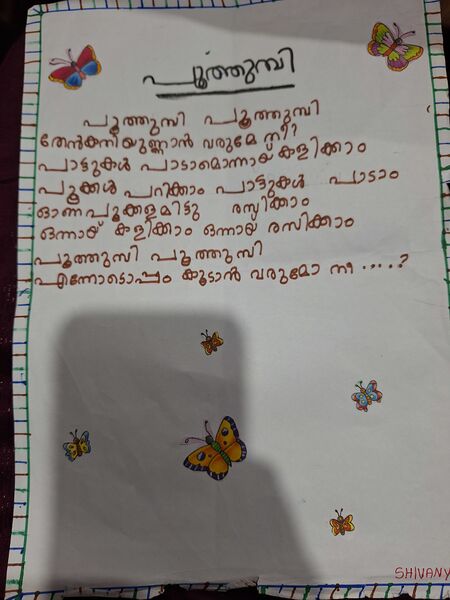 പൂത്തുമ്പി
പൂത്തുമ്പി പൂത്തുമ്പി
തേൻകനിയുണ്ണാൻ വരുമേ നീ?
പാട്ടുകൾ പാടാമൊന്നായ് കളിക്കാം
പൂക്കൾ പറിക്കാം പാട്ടുകൾ പാടാം
ഓണപൂക്കളമിട്ടു രസിക്കാം
ഒന്നായ് കളിക്കാം ഒന്നായ് രസിക്കാം
പൂത്തുമ്പി പൂത്തുമ്പി
എന്നോടൊപ്പം കൂടാൻ വരുമോ നീ .....?
SHIVANY